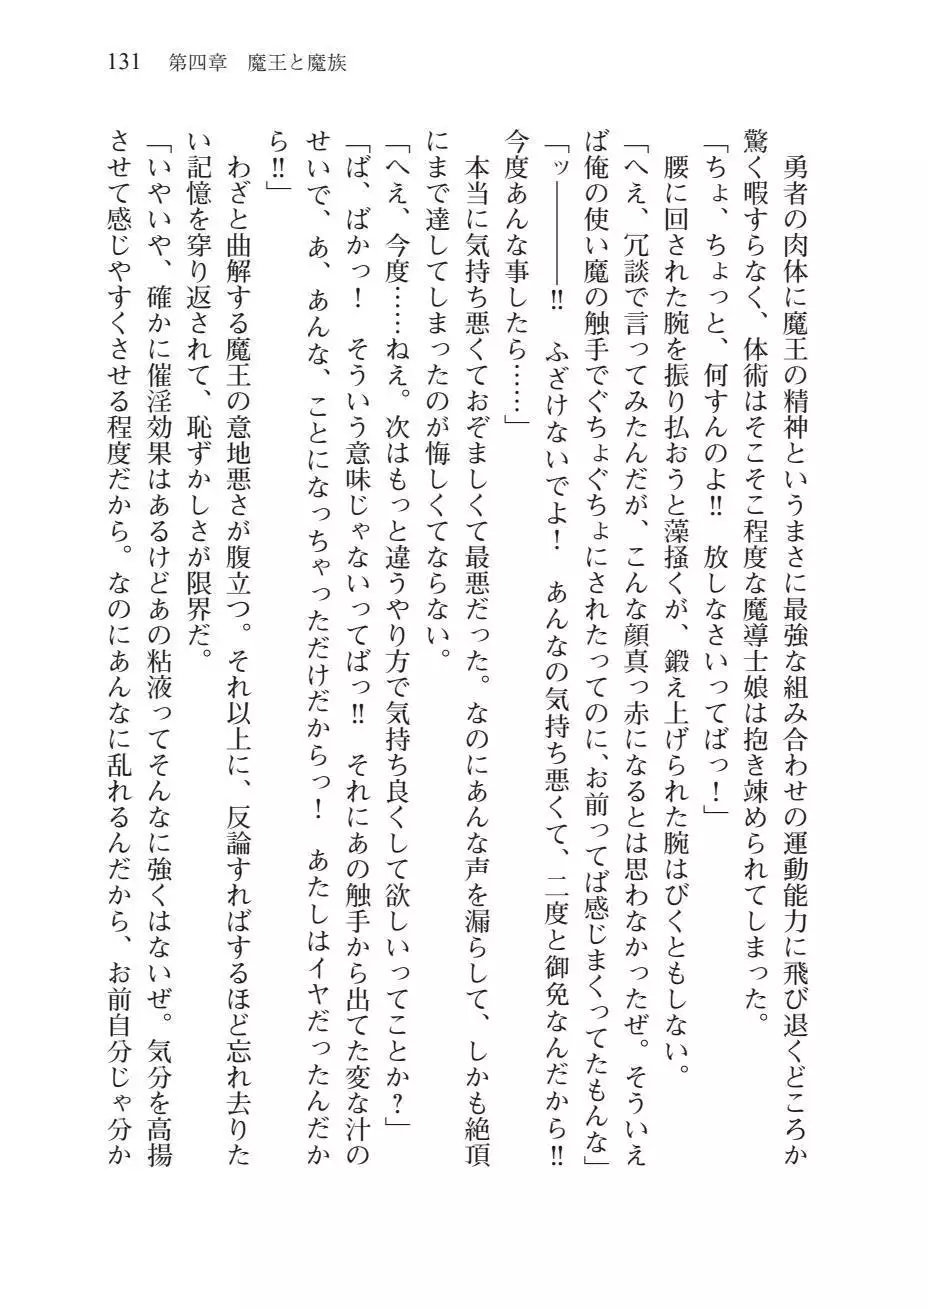 131　第四章　魔王と魔族
　勇者の肉体に魔王の精神というまさに最強な組み合わせの運動能力に飛び退くどころか
驚く暇すらなく、体術はそこそこ程度な魔導士娘は抱き竦められてしまった。
「ちょ、ちょっと、何すんのよ‼　放しなさいってばっ！」
　腰に回された腕を振り払おうと藻掻くが、鍛え上げられた腕はびくともしない。
「へえ、冗談で言ってみたんだが、こんな顔真っ赤になるとは思わなかったぜ。そういえ
ば俺の使い魔の触手でぐちょぐちょにされたってのに、お前ってば感じまくってたもんな」
「ッ――――‼　ふざけないでよ！　あんなの気持ち悪くて、二度と御免なんだから‼
今度あんな事したら……」
　本当に気持ち悪くておぞましくて最悪だった。なのにあんな声を漏らして、しかも絶頂
にまで達してしまったのが悔しくてならない。
「へえ、今度……ねえ。次はもっと違うやり方で気持ち良くして欲しいってことか？」
「ば、ばかっ！　そういう意味じゃないってばっ‼　それにあの触手から出てた変な汁の
せいで、あ、あんな、ことになっちゃっただけだからっ！　あたしはイヤだったんだか
ら‼」
　わざと曲解する魔王の意地悪さが腹立つ。それ以上に、反論すればするほど忘れ去りた
い記憶を穿り返されて、恥ずかしさが限界だ。
「いやいや、確かに催淫効果はあるけどあの粘液ってそんなに強くはないぜ。気分を高揚
させて感じやすくさせる程度だから。なのにあんなに乱れるんだから、お前自分じゃ分か